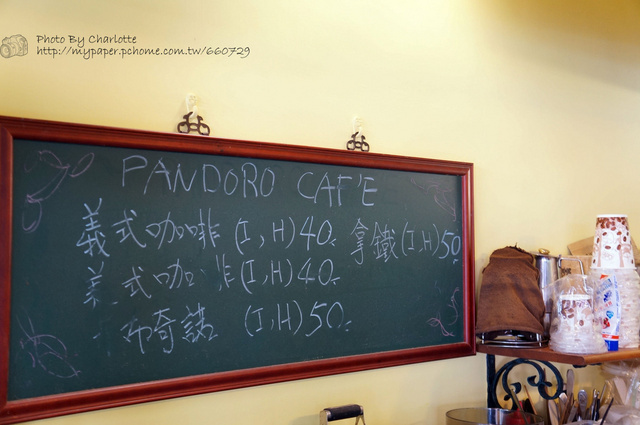 Photo By Charlotte
http://mypaper.pchome.com.tw/660729
PANDORO CAF'E
義式咖啡 (I,H) 40. 拿鐵 (I,H) 50
美式咖啡 (I,H) 40.
布奇諾 (I,H) 50.